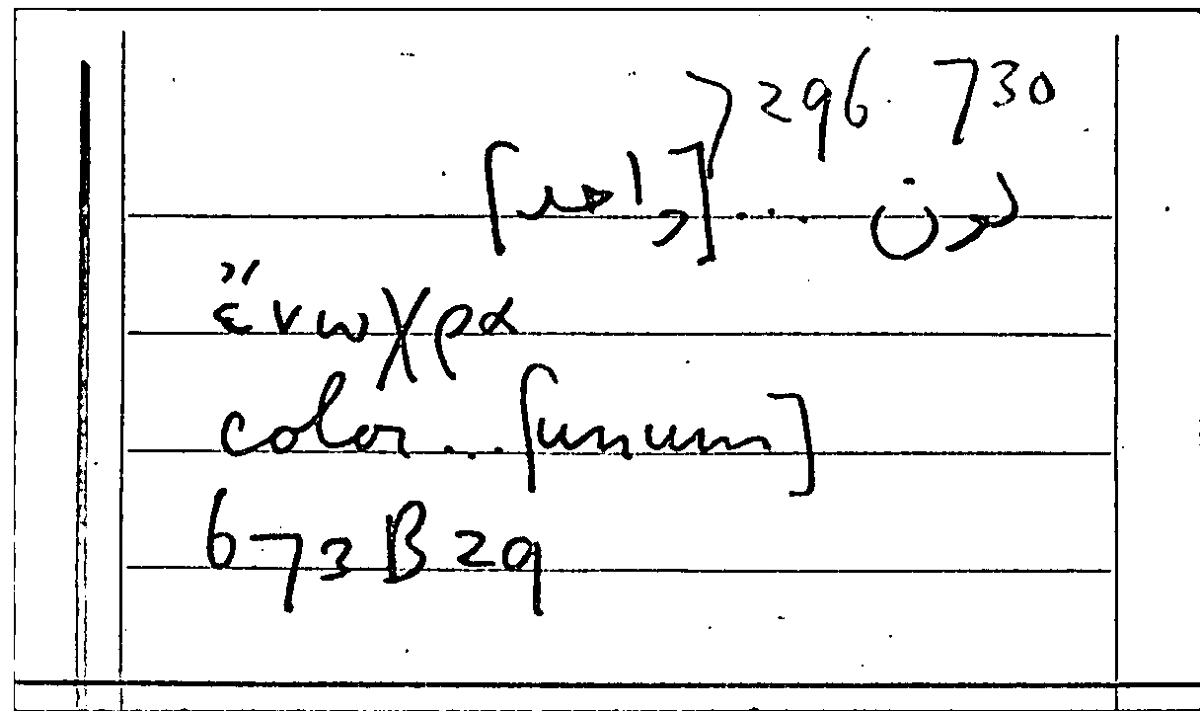 296 730
لون ... [واحد]
ἔνωχρα
color ... [unum]
673 B 29